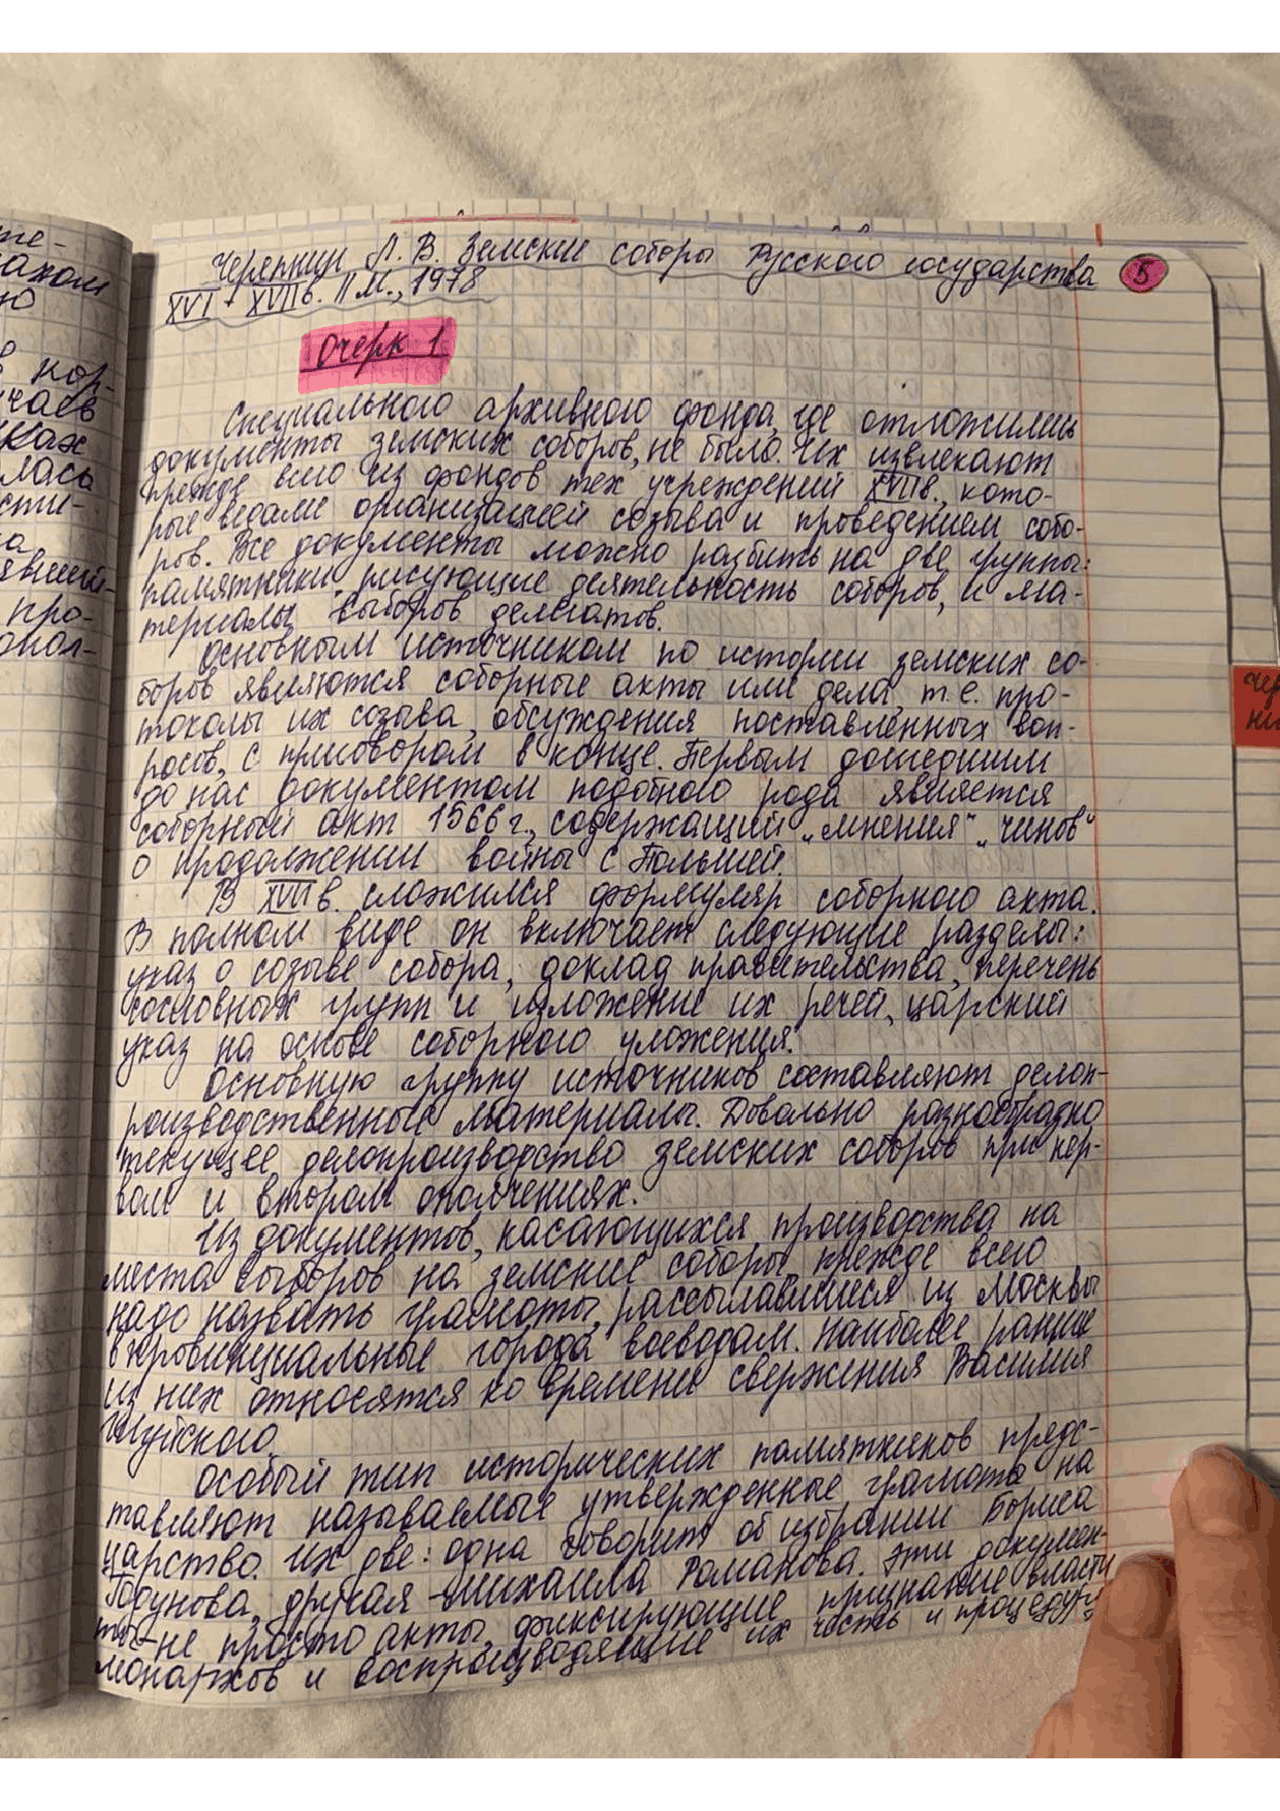 Черепнин Л. В. Земские соборы Русского государства
XVI - XVIIв. // М., 1978
5
Очерк 1
Специального архивного фонда, где отложились
документы земских соборов, не было. Их извлекают
прежде всего из фондов тех учреждений XVIIв., кото-
рые ведали организацией созыва и проведением собо-
ров. Все документы можно разбить на две группы:
памятники, рисующие деятельность соборов, и ма-
териалы выборов делегатов.
Основным источником по истории земских со-
боров являются соборные акты или дела, т.е. про-
токолы их созыва, обсуждения поставленных воп-
росов, с приговором в конце. Первым дошедшим
до нас документом подобного рода является
соборный акт 1566 г., содержащий „мнения" „чинов"
о продолжении войны с Польшей.
В XVIIв. сложился формуляр соборного акта.
В полном виде он включает следующие разделы:
указ о созыве собора, доклад правительства, перечень
сословных групп и изложение их речей, царский
указ на основе соборного уложения.
Основную группу источников составляют делоп-
роизводственные материалы. Довольно разнообразно
текущее делопроизводство земских соборов при пер-
вом и втором ополчениях.
Из документов, касающихся производства на
места выборов на земские соборы, прежде всего
надо назвать грамоты, рассылавшиеся из Москвы
в провинциальные города воеводам. Наиболее ранние
из них относятся ко времени свержения Василия
Шуйского.
Особый тип исторических памятников предс-
тавляют называемые утвержденные грамоты на
царство. Их две: одна говорит об избрании Бориса
Годунова, другая - Михаила Романова. Эти докумен-
ты - не просто акты, фиксирующие признание власти
монархов и воспроизводящие их честь и процедуру
те-
ахом
ю
в кор-
чаев
ках
лась
сти-
а
явшей-
про-
опол-
чер
ни